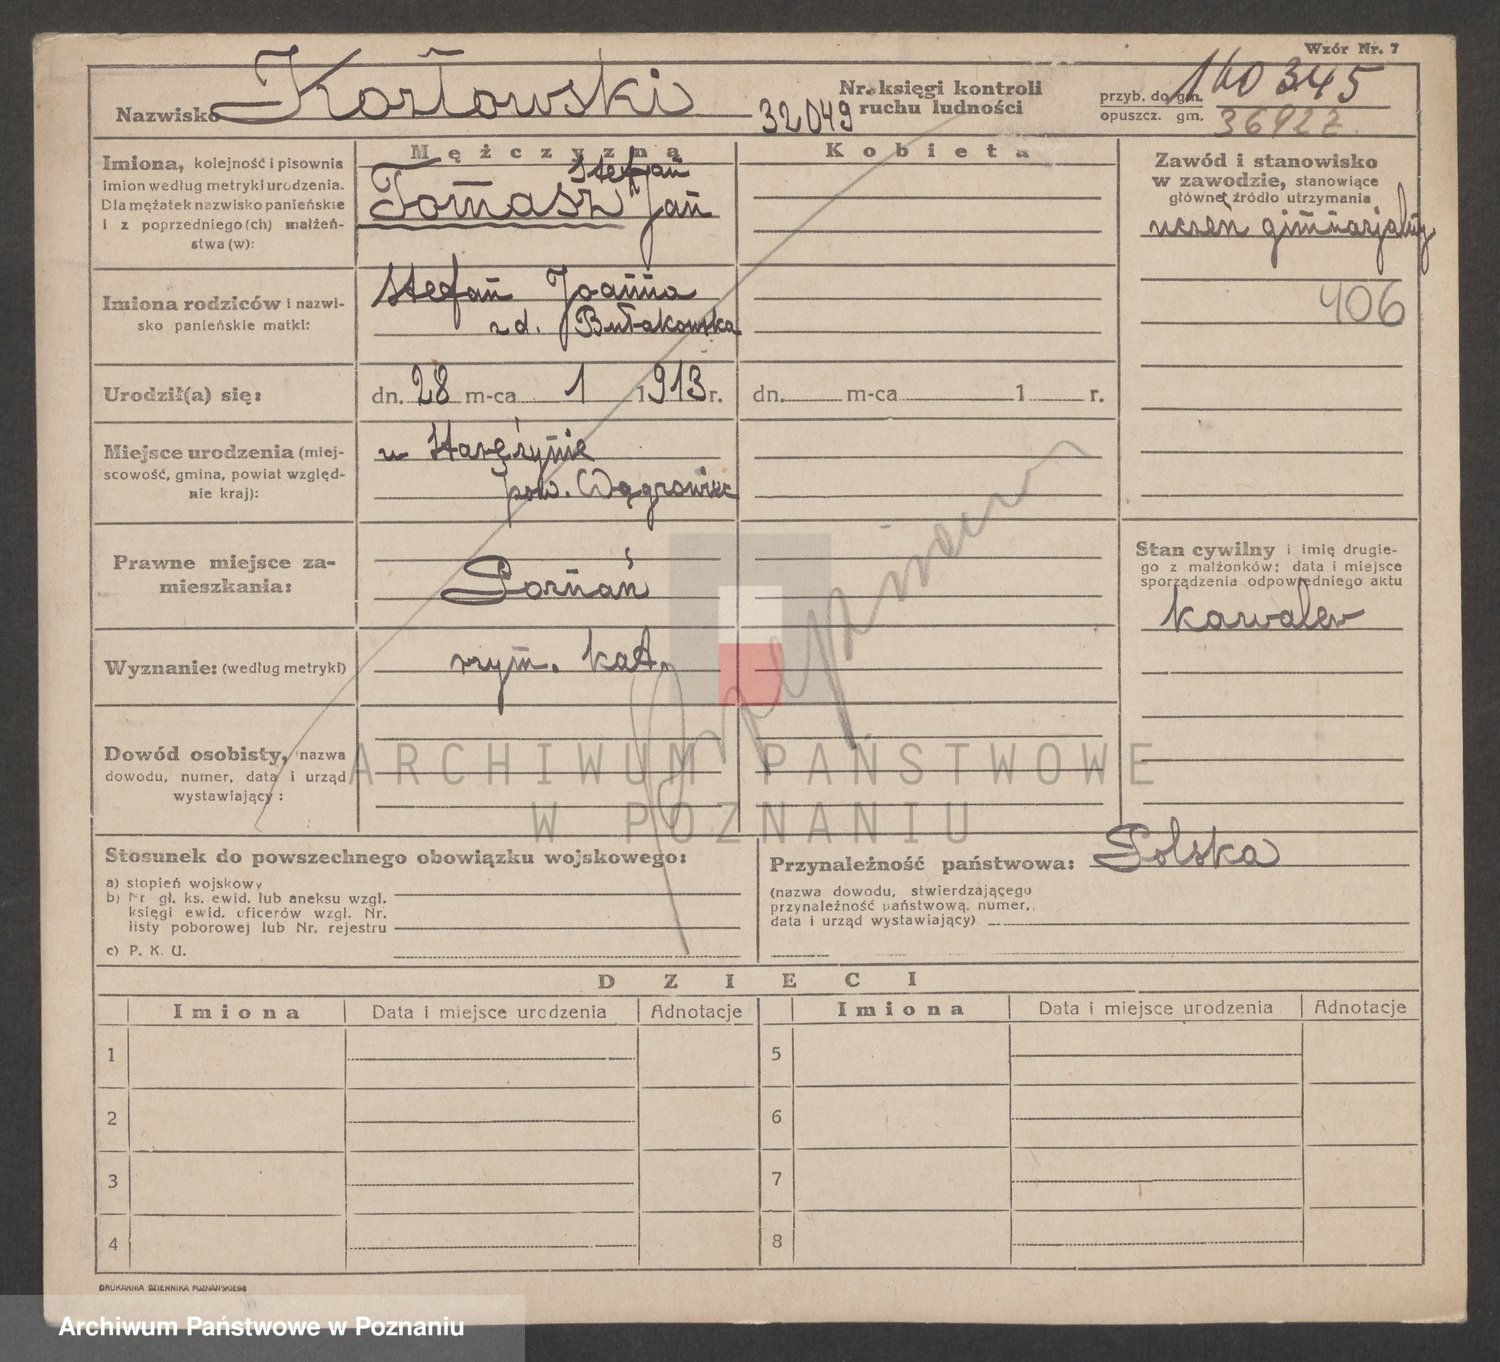 Wzór Nr. 7
Nazwisko Kozłowski
32049
Nr. księgi kontroli
ruchu ludności
przyb. do gm. 140345
opuszcz. gm. 36922
Mężczyzna
Kobieta
Imiona, kolejność i pisownia
imion według metryki urodzenia.
Dla mężatek nazwisko panieńskie
i z poprzedniego (ch) małżeń-
stwa (w):
Stefan
Tomasz Jan
Zawód i stanowisko
w zawodzie, stanowiące
główne źródło utrzymania
uczeń gimnazjalny
406
Imiona rodziców i nazwi-
sko panieńskie matki:
Stefan Joanna
z d. Bułakowska
Urodził(a) się:
dn. 28 m-ca 1 1913 r.
dn. m-ca 1 r.
Miejsce urodzenia (miej-
scowość, gmina, powiat względ-
nie kraj):
w Starężynie
pow. Wągrowiec
Prawne miejsce za-
mieszkania:
Poznań
Stan cywilny i imię drugie-
go z małżonków; data i miejsce
sporządzenia odpowiedniego aktu
kawaler
Wyznanie: (według metryki)
rzym. kat.
Dowód osobisty, nazwa
dowodu, numer, data i urząd
wystawiający:
ARCHIWUM PAŃSTWOWE
W POZNANIU
Stosunek do powszechnego obowiązku wojskowego:
a) stopień wojskowy
b) Nr gł. ks. ewid. lub aneksu wzgl.
księgi ewid. oficerów wzgl. Nr.
listy poborowej lub Nr. rejestru
c) P. K. U.
Przynależność państwowa: Polska
(nazwa dowodu, stwierdzającego
przynależność państwową, numer,
data i urząd wystawiający)
DZIECI
Imiona
Data i miejsce urodzenia
Adnotacje
Imiona
Data i miejsce urodzenia
Adnotacje
1
5
2
6
3
7
4
8
DRUKARNIA DZIENNIKA POZNAŃSKIEGO
Archiwum Państwowe w Poznaniu